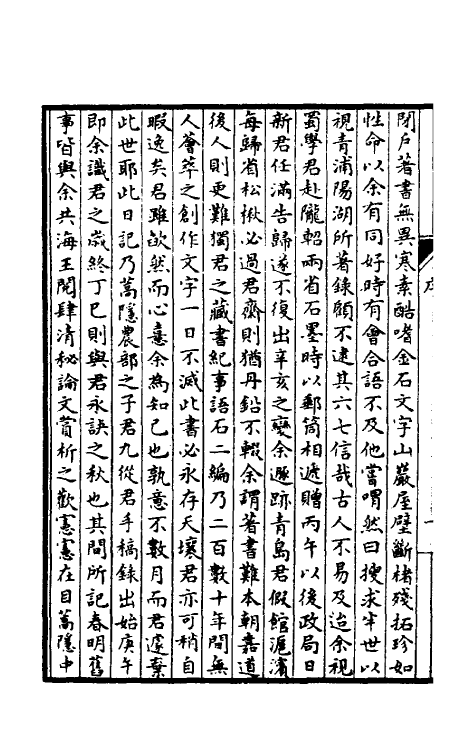 序
閉戶著書無異寒素酷嗜金石文字山巖屋壁斷楮殘拓珍如
性命以余有同好時有會合語不及他嘗喟然曰搜求半世以
視青浦陽湖所著錄顧不逮其六七信哉古人不易及迨余視
蜀學君赴隴軺兩省石墨時以郵筒相遞贈丙午以後政局日
新君任滿告歸遂不復出辛亥之變余遯跡青島君假館滬濱
每歸省松楸必過君齋則猶丹鉛不輟余謂著書難本朝嘉道
後人則更難獨君之藏書紀事語石二編乃二百數十年間無
人薈萃之創作文字一日不滅此書必永存天壤君亦可稍自
暇逸矣君雖欿然而心憙余為知己也孰意不數月而君遽棄
此世耶此日記乃蒿隱農部之子君九從君手稿錄出始庚午
即余識君之歲終丁巳則與君永訣之秋也其間所記春明舊
事皆與余共海王閱肆清秘論文賞析之歡憲憲在目蒿隱中